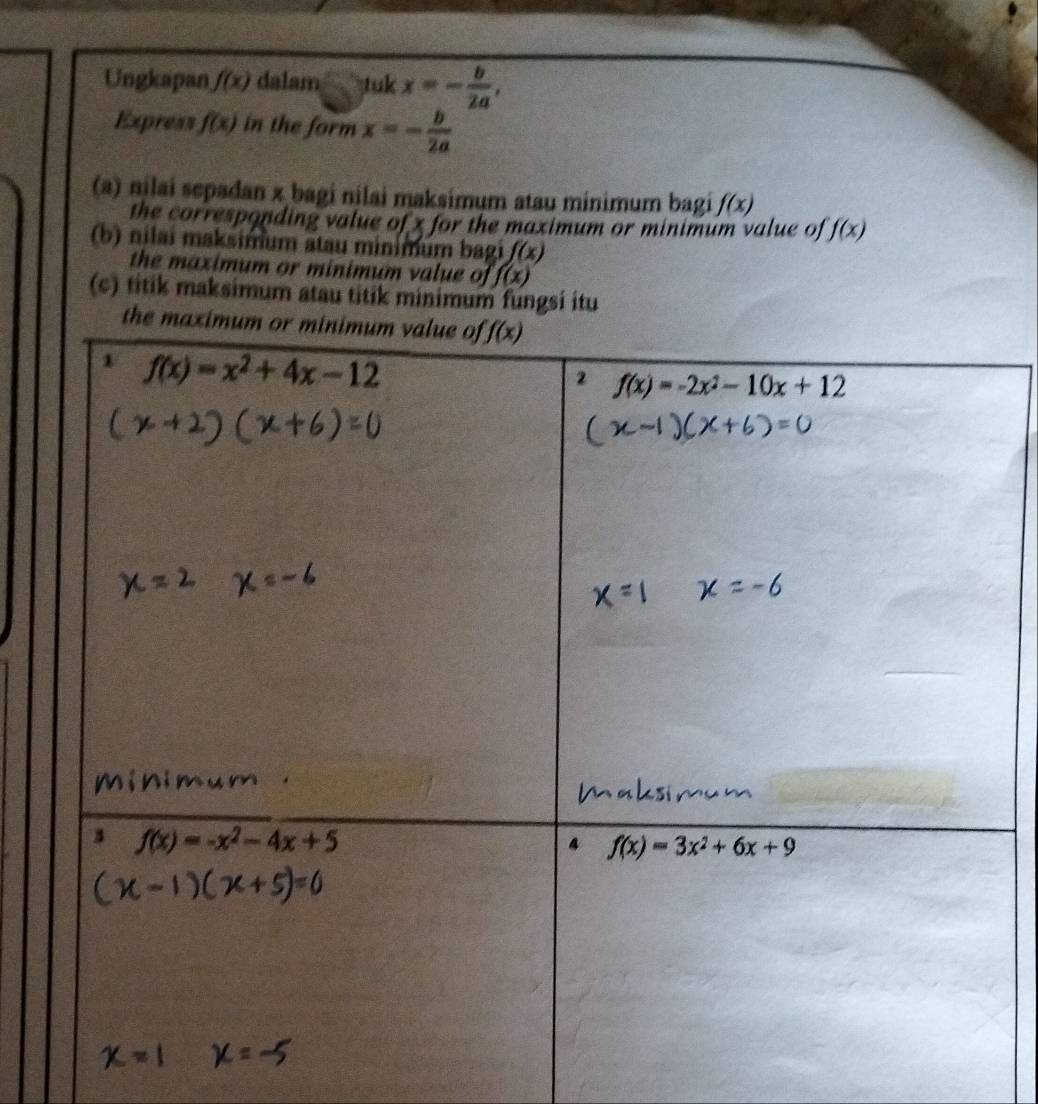 Ungkapan f(x) dalam tuk x = -b/2a,
Express f(x) in the form x = -b/2a
(a) nilai sepadan x bagi nilai maksimum atau minimum bagi f(x)
the corresponding value of x for the maximum or minimum value of f(x)
(b) nilai maksimum atau minimum bagi f(x)
the maximum or minimum value of f(x)
(c) titik maksimum atau titik minimum fungsi itu
the maximum or minimum value of f(x)
1 f(x) = x² + 4x - 12
(x+2)(x+6)=0
x=2 x=-6
minimum
2 f(x) = -2x² - 10x + 12
(x-1)(x+6)=0
x=1 x=-6
maksimum
3 f(x) = -x² - 4x + 5
(x-1)(x+5)=0
x=1 x=-5
4 f(x) = 3x² + 6x + 9